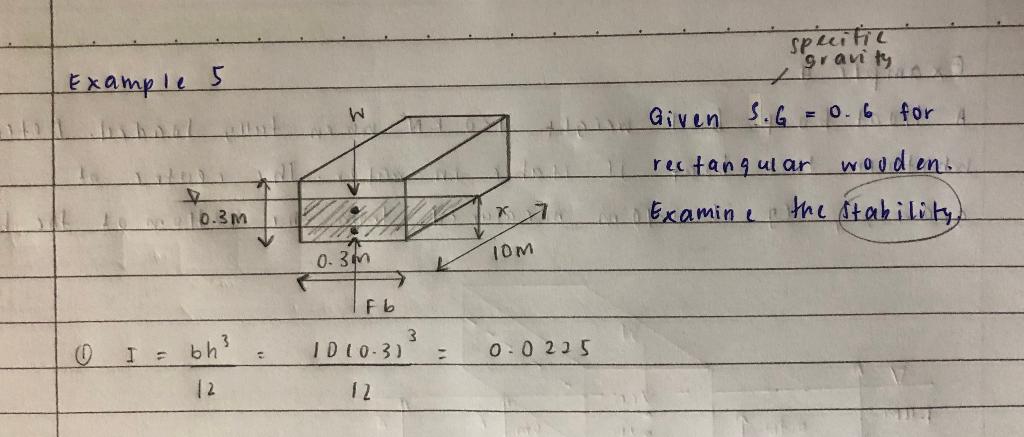 specific
gravity
Example 5
Given S.G = 0.6 for
rectangular wooden.
Examine the stability.
W
0.3m
x
0.3m
10m
Fb
① I = bh³/12 = 10(0.3)³/12 = 0.0225